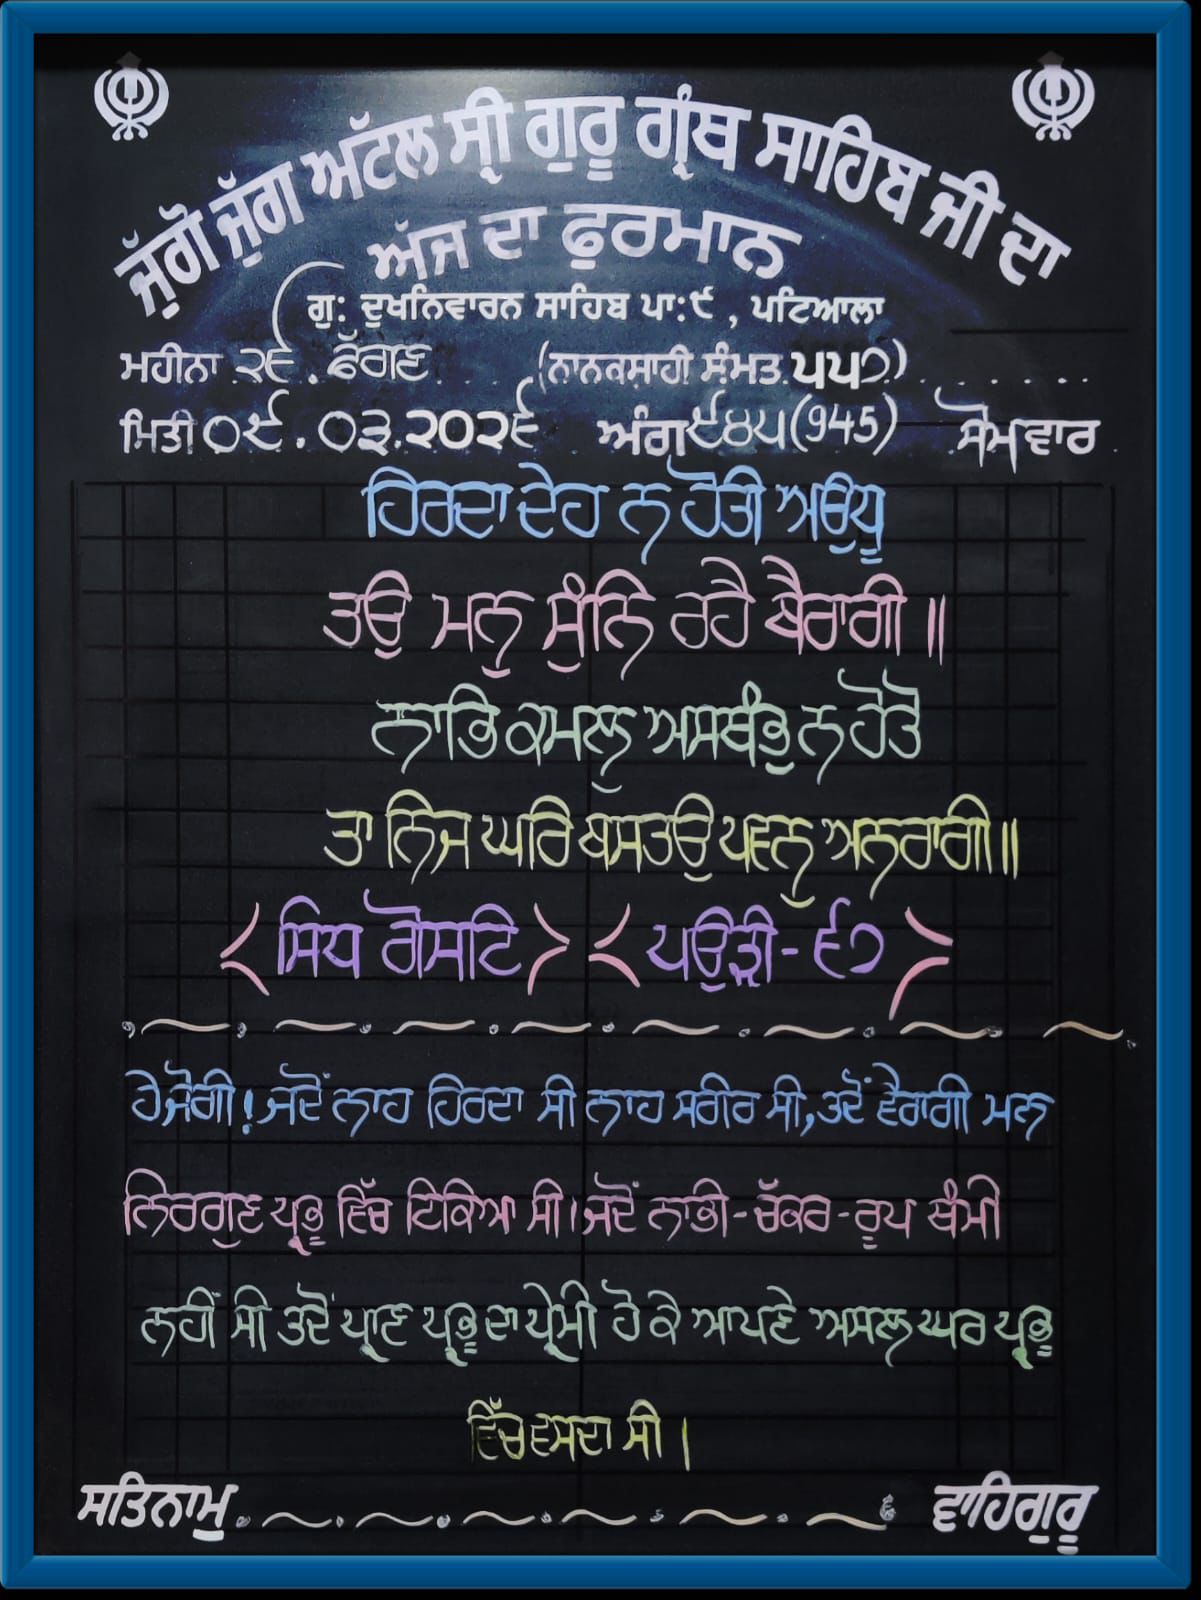 ਜੁੱਗੋ ਜੁੱਗ ਅਟੱਲ ਸ੍ਰੀ ਗੁਰੂ ਗ੍ਰੰਥ ਸਾਹਿਬ ਜੀ ਦਾ
ਅੱਜ ਦਾ ਫੁਰਮਾਨ
ਗੁ: ਦੁਖਨਿਵਾਰਨ ਸਾਹਿਬ ਪਾ:੯ , ਪਟਿਆਲਾ
ਮਹੀਨਾ ੨੬ . ਫੱਗਣ (ਨਾਨਕਸ਼ਾਹੀ ਸੰਮਤ ੫੫੭)
ਮਿਤੀ ੦੯.੦੩.੨੦੨੬ ਅੰਗ ੯੪੫(945) ਸੋਮਵਾਰ
ਹਿਰਦਾ ਦੇਹ ਨ ਹੋਤੀ ਅਉਧੂ
ਤਉ ਮਨੁ ਸੁੰਨਿ ਰਹੈ ਬੈਰਾਗੀ ॥
ਨਾਭਿ ਕਮਲੁ ਅਸਥੰਭੁ ਨ ਹੋਤੋ
ਤਾ ਨਿਜ ਘਰਿ ਬਸਤਉ ਪਵਨੁ ਅਨਰਾਗੀ ॥
<ਸਿਧ ਗੋਸਟਿ> <ਪਉੜੀ - ੬੭>
ਹੇ ਜੋਗੀ! ਜਦੋਂ ਨਾਹ ਹਿਰਦਾ ਸੀ ਨਾਹ ਸਰੀਰ ਸੀ, ਤਦੋਂ ਵੈਰਾਗੀ ਮਨ
ਨਿਰਗੁਣ ਪ੍ਰਭੂ ਵਿੱਚ ਟਿਕਿਆ ਸੀ। ਜਦੋਂ ਨਾਭੀ-ਚੱਕਰ-ਰੂਪ ਥੰਮੀ
ਨਹੀਂ ਸੀ ਤਦੋਂ ਪ੍ਰਾਣ ਪ੍ਰਭੂ ਦਾ ਪ੍ਰੇਮੀ ਹੋ ਕੇ ਆਪਣੇ ਅਸਲ ਘਰ ਪ੍ਰਭੂ
ਵਿੱਚ ਵਸਦਾ ਸੀ ।
ਸਤਿਨਾਮੁ ਵਾਹਿਗੁਰੂ